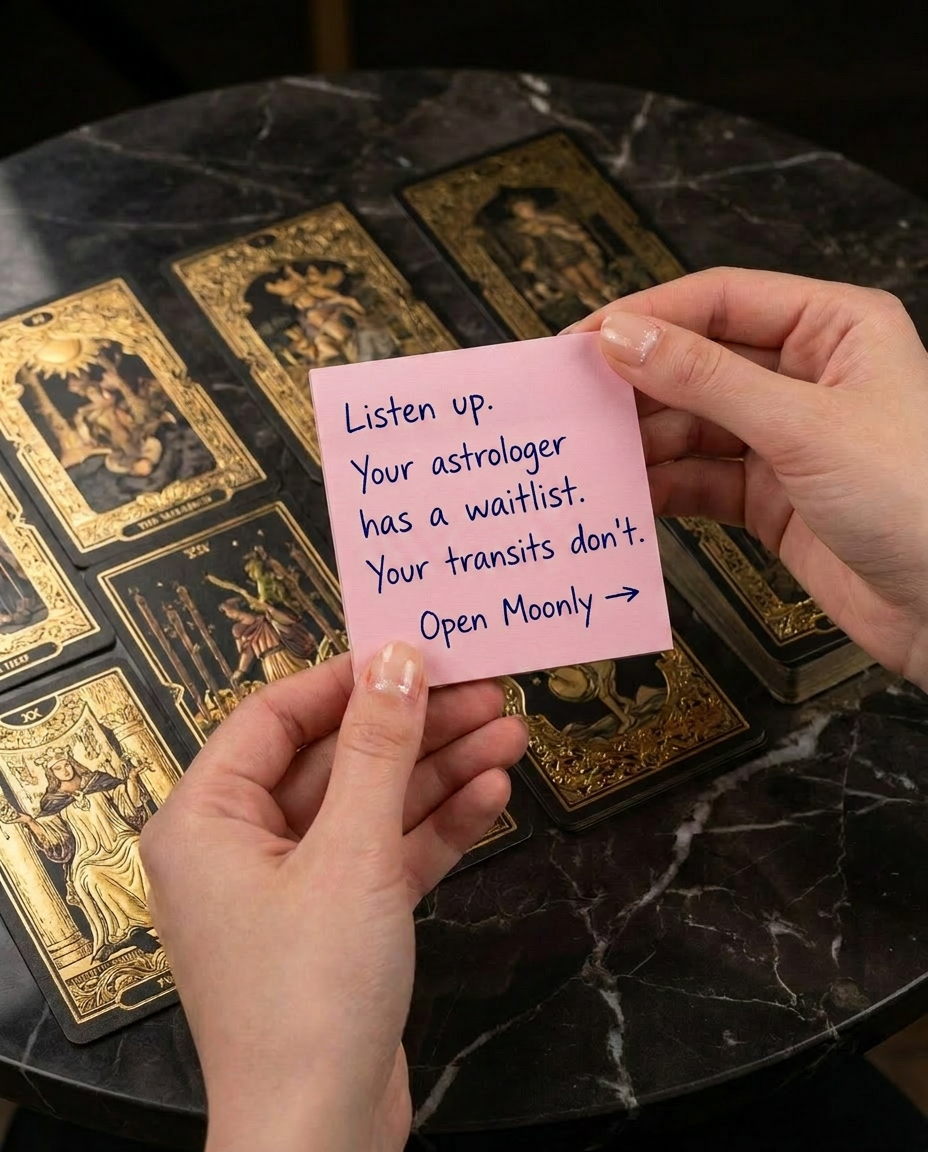 Listen up.
Your astrologer
has a waitlist.
Your transits don't.
Open Moonly →
XX